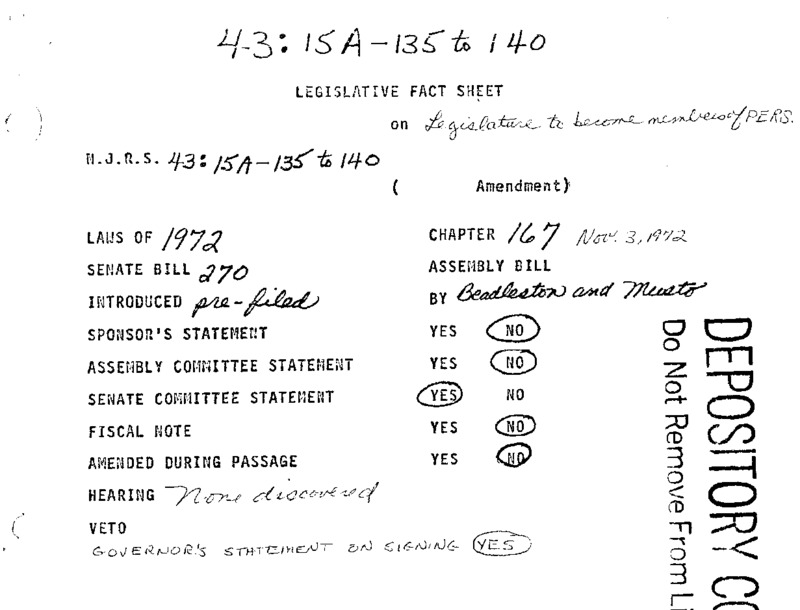 43: 15A-135 to 140
LEGISLATIVE FACT SHEET
on Legislature to become members of PERS.
N.J.R.S. 43: 15A-135 to 140
( Amendment)
LAWS OF 1972 CHAPTER 167 Nov. 3, 1972
SENATE BILL 270 ASSEMBLY BILL
INTRODUCED pre-filed BY Beadleston and Musto
SPONSOR'S STATEMENT YES NO
ASSEMBLY COMMITTEE STATEMENT YES NO
SENATE COMMITTEE STATEMENT YES NO
FISCAL NOTE YES NO
AMENDED DURING PASSAGE YES NO
HEARING None discovered
VETO
GOVERNOR'S STATEMENT ON SIGNING YES
DEPOSITORY CO
Do Not Remove From Li